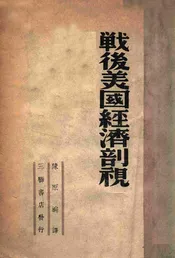 戰後美國經濟剖視
陳 譯
三聯書店發行